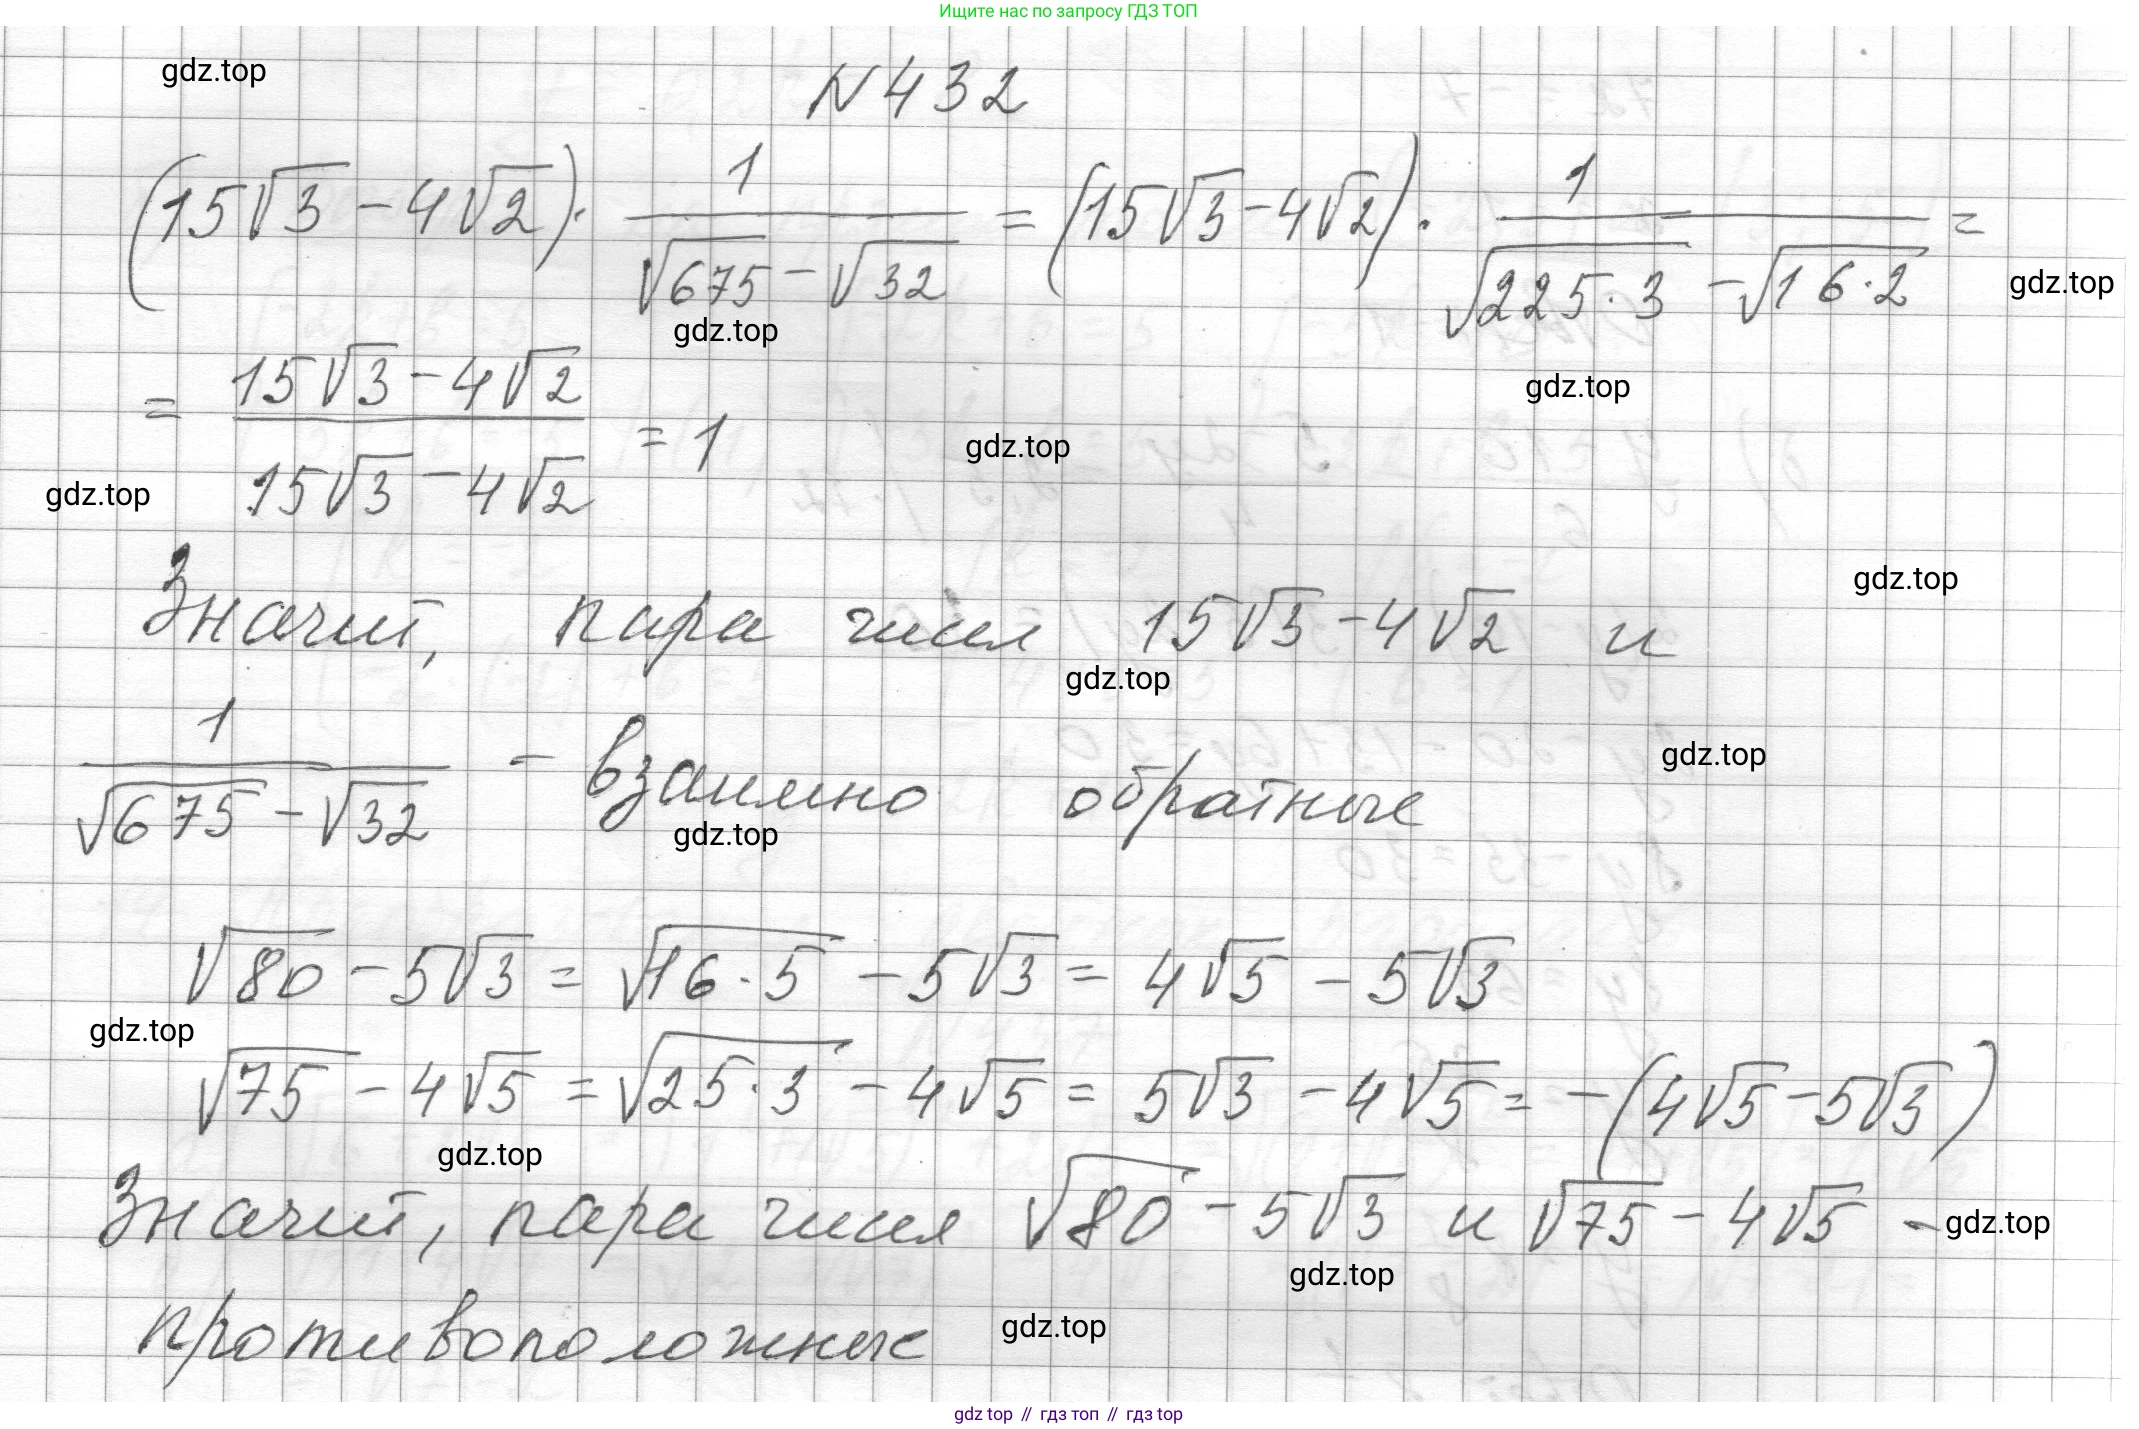 Ищите нас по запросу ГДЗ ТОП
gdz.top
N432
(15√3 - 4√2) · 1/(√675 - √32) = (15√3 - 4√2) · 1/(√225·3 - √16·2) =
gdz.top
gdz.top
gdz.top
= (15√3 - 4√2)/(15√3 - 4√2) = 1
gdz.top
gdz.top
gdz.top
Значит, пара чисел 15√3 - 4√2 и
gdz.top
1/(√675 - √32) - взаимно обратные
gdz.top
gdz.top
√80 - 5√3 = √16·5 - 5√3 = 4√5 - 5√3
gdz.top
√75 - 4√5 = √25·3 - 4√5 = 5√3 - 4√5 = -(4√5 - 5√3)
gdz.top
Значит, пара чисел √80 - 5√3 и √75 - 4√5 -
gdz.top
gdz.top
противоположные
gdz.top
gdz top // гдз топ // гдз top